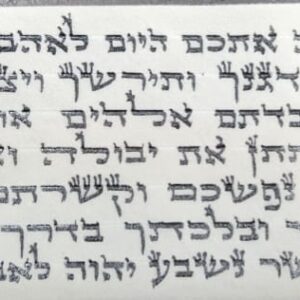 אתכם היום לאהב
דגנך ותירשך ויצ
בדתם אלהים א
תתן את יבולה וא
נפשכם וקשרתם
ובלכתך בדרך
שר נשבע יהוה לאב